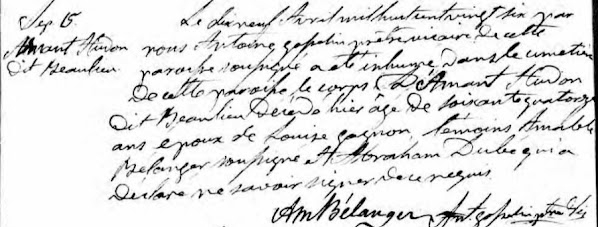 Sep 15
Amant Hudon
dit Beaulieu
Le dixneuf Avril mil huit cent vingt six par
nous Antoine gosselin prêtre vicaire de cette
paroisse soussigné a été inhumé dans le cimetière
de cette paroisse, le corps D'Amant Hudon
dit Beaulieu décédé hier âgé de soisante quatorze
ans epoux de Louise gagnon, témoins, Amable
Bélanger soussigné & Abraham Dubé qui a
declaré ne savoir signer de ce requis
Am Bélanger Ant gosselin ptre